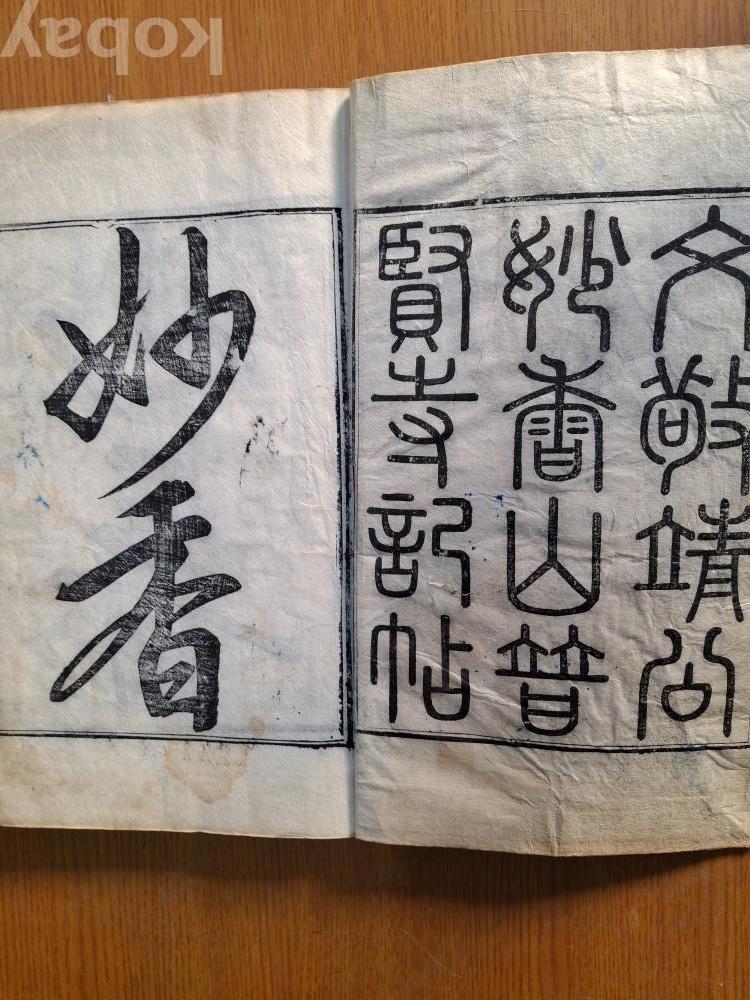 kobay
文敬靖公
妙香山普
賢寺記帖
妙香